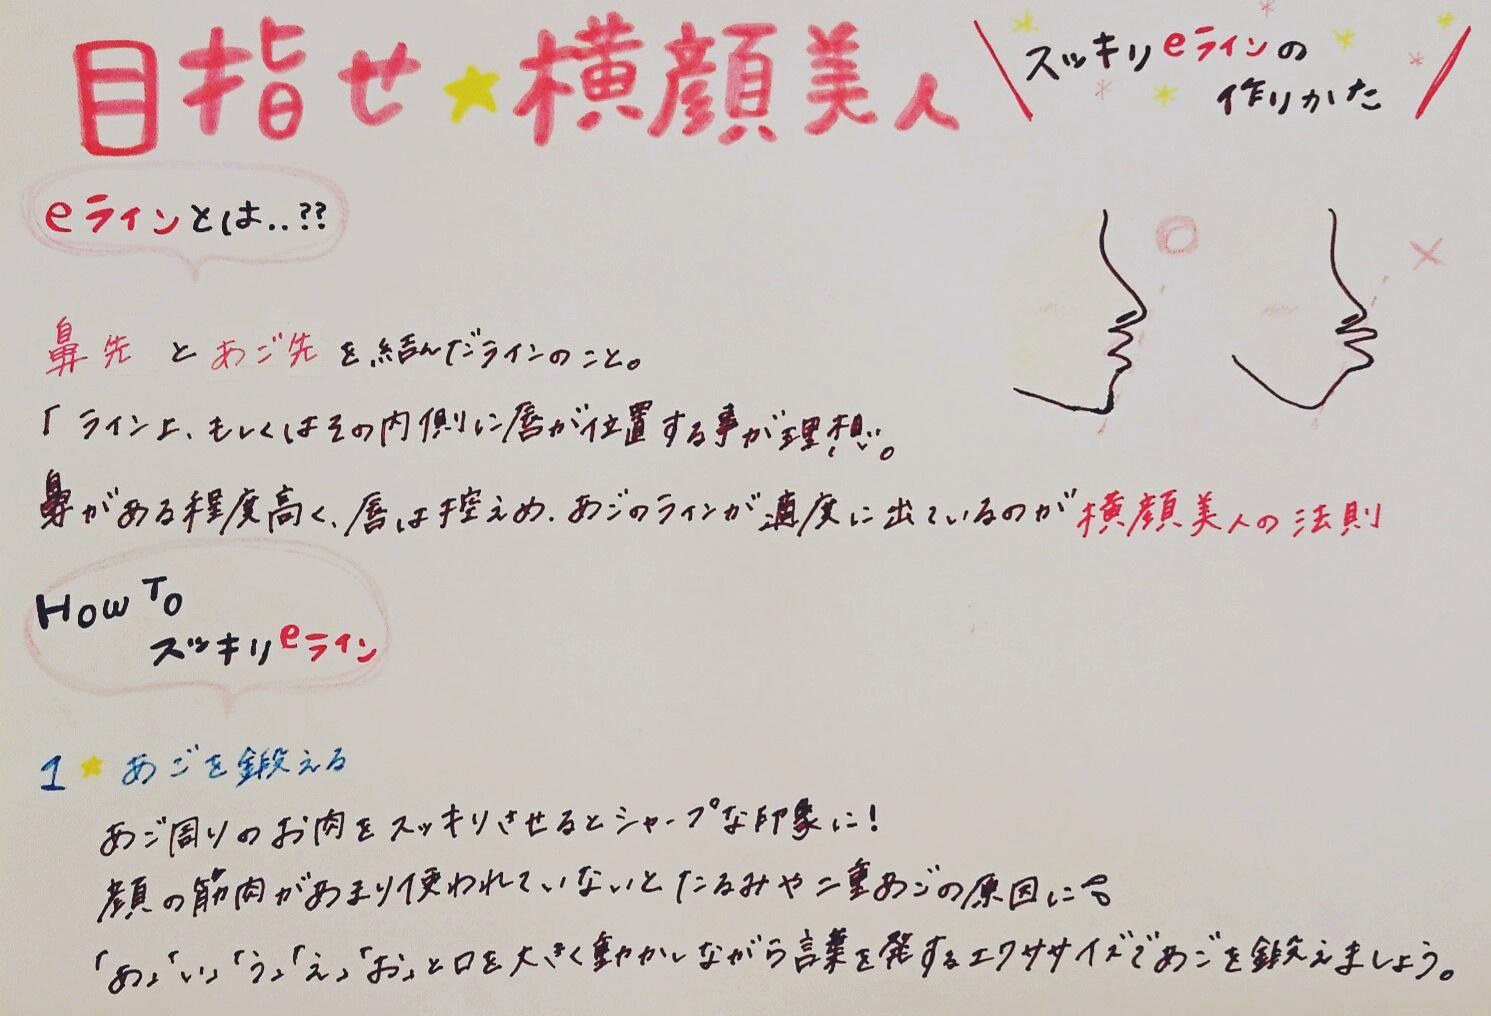 目指せ★横顔美人
スッキリeラインの
作りかた
eラインとは..??
鼻先とあご先を結んだラインのこと。
「ライン上、もしくはその内側に唇が位置する事が理想。
鼻がある程度高く、唇は控えめ、あごのラインが適度に出ているのが横顔美人の法則
HOW TO
スッキリeライン
1★あごを鍛える
あご周りのお肉をスッキリさせるとシャープな印象に!
顔の筋肉があまり使われていないとたるみや二重あごの原因に
「あ」「い」「う」「え」「お」と口を大きく動かしながら言葉を発するエクササイズであごを鍛えましょう。